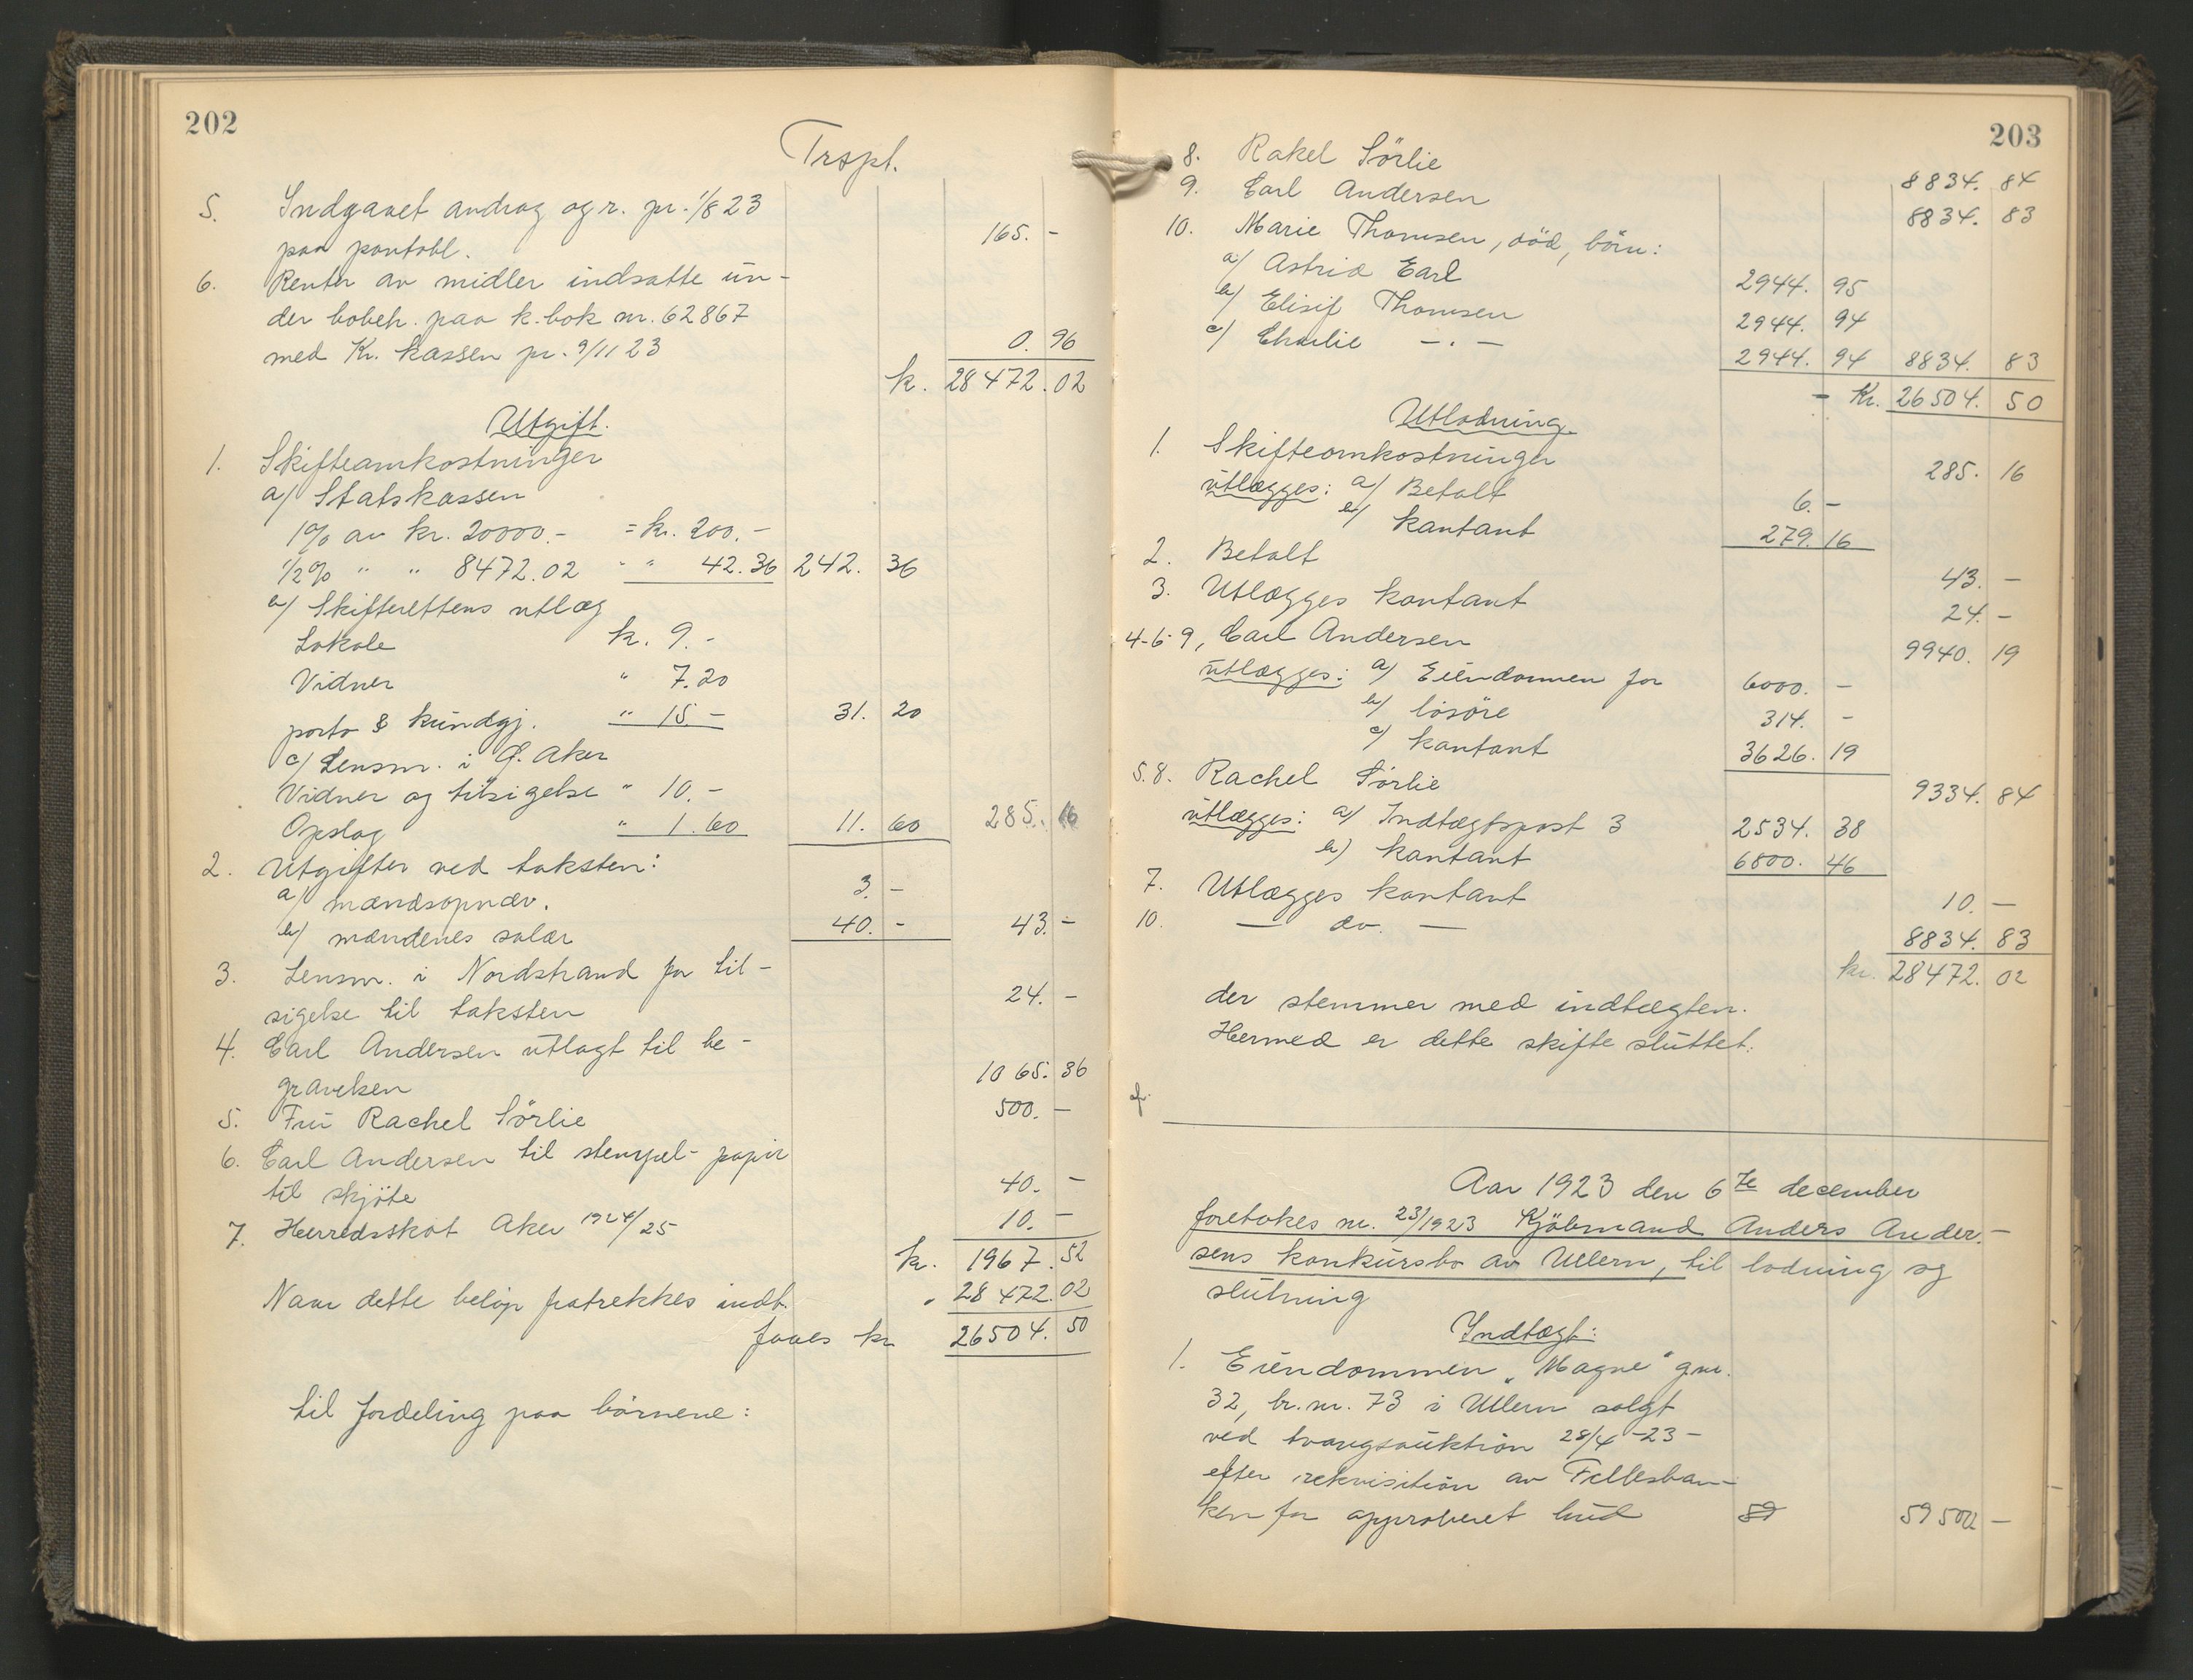 202
Trspt.
5. Indgaaet avdrag og r. pr. 1/8 23
paa pantobl. 165. -
6. Renter av midler indsatte un-
der bobeh. paa k.bok nr. 62867
med Kr. kassen pr. 9/11 23 0. 96
kr. 28472. 02
Utgift.
1. Skifteomkostninger
a/ Statskassen
1% av kr. 20000.- = kr. 200.-
1/2% " " 8472.02 " " 42.36 242. 36
b/ Skifterettens utlæg
Lokale kr. 9.-
Vidner " 7.20
porto & kundgj. " 15.- 31. 20
c/ Lensm. i Ø. Aker
Vidner og tilsigelse " 10.-
Opslag " 1.60 11. 60 285. 16
2. Utgifter ved taksten:
a/ mændsopnæv. 3. -
b/ mændenes salær 40. - 43. -
3. Lensm. i Nordstrand for til-
sigelse til taksten 24. -
4. Carl Andersen utlagt til be-
gravelsen 1065. 36
5. Fru Rachel Sörlie 500. -
6. Carl Andersen til stempel-papir
til skjöte 40. -
7. Herredsskat Aker 1924/25 10. -
kr. 1967. 52
Naar dette belöp fratrekkes indt. " 28472. 02
faaes kr 26504. 50
til fordeling paa börnene:
203
8. Rakel Sörlie 8834. 84
9. Carl Andersen 8834. 83
10. Marie Thomsen, död, börn:
a/ Astrid Earl 2944. 95
b/ Elisif Thomsen 2944. 94
c/ Charlie - " - 2944. 94 8834. 83
- Kr. 26504. 50
Utlodning.
1. Skifteomkostninger 285. 16
utlægges: a/ Betalt 6. -
b/ kontant 279. 16
2. Betalt 43. -
3. Utlægges kontant 24. -
4-6-9, Carl Andersen 9940. 19
utlægges: a/ Eiendommen for 6000. -
b/ lösöre 314. -
c/ kontant 3626. 19
5.8. Rachel Sörlie 9334. 84
utlægges: a/ Indtægtspost 3 2534. 38
b/ kontant 6800. 46
7. Utlægges kontant 10. -
10. — do. — 8834. 83
kr. 28472. 02
der stemmer med indtægten.
Hermed er dette skifte sluttet.
Aar 1923 den 6te december
foretokes nr. 23/1923 Kjöbmand Anders Ander-
sens konkursbo av Ullern, til lodning og
slutning
Indtægt:
1. Eiendommen "Magne" gnr.
32, br.nr. 73 i Ullern solgt
ved tvangsauktion 28/4-23-
efter rekvisition av Fellesban-
ken for approberet bud 59 59500 -